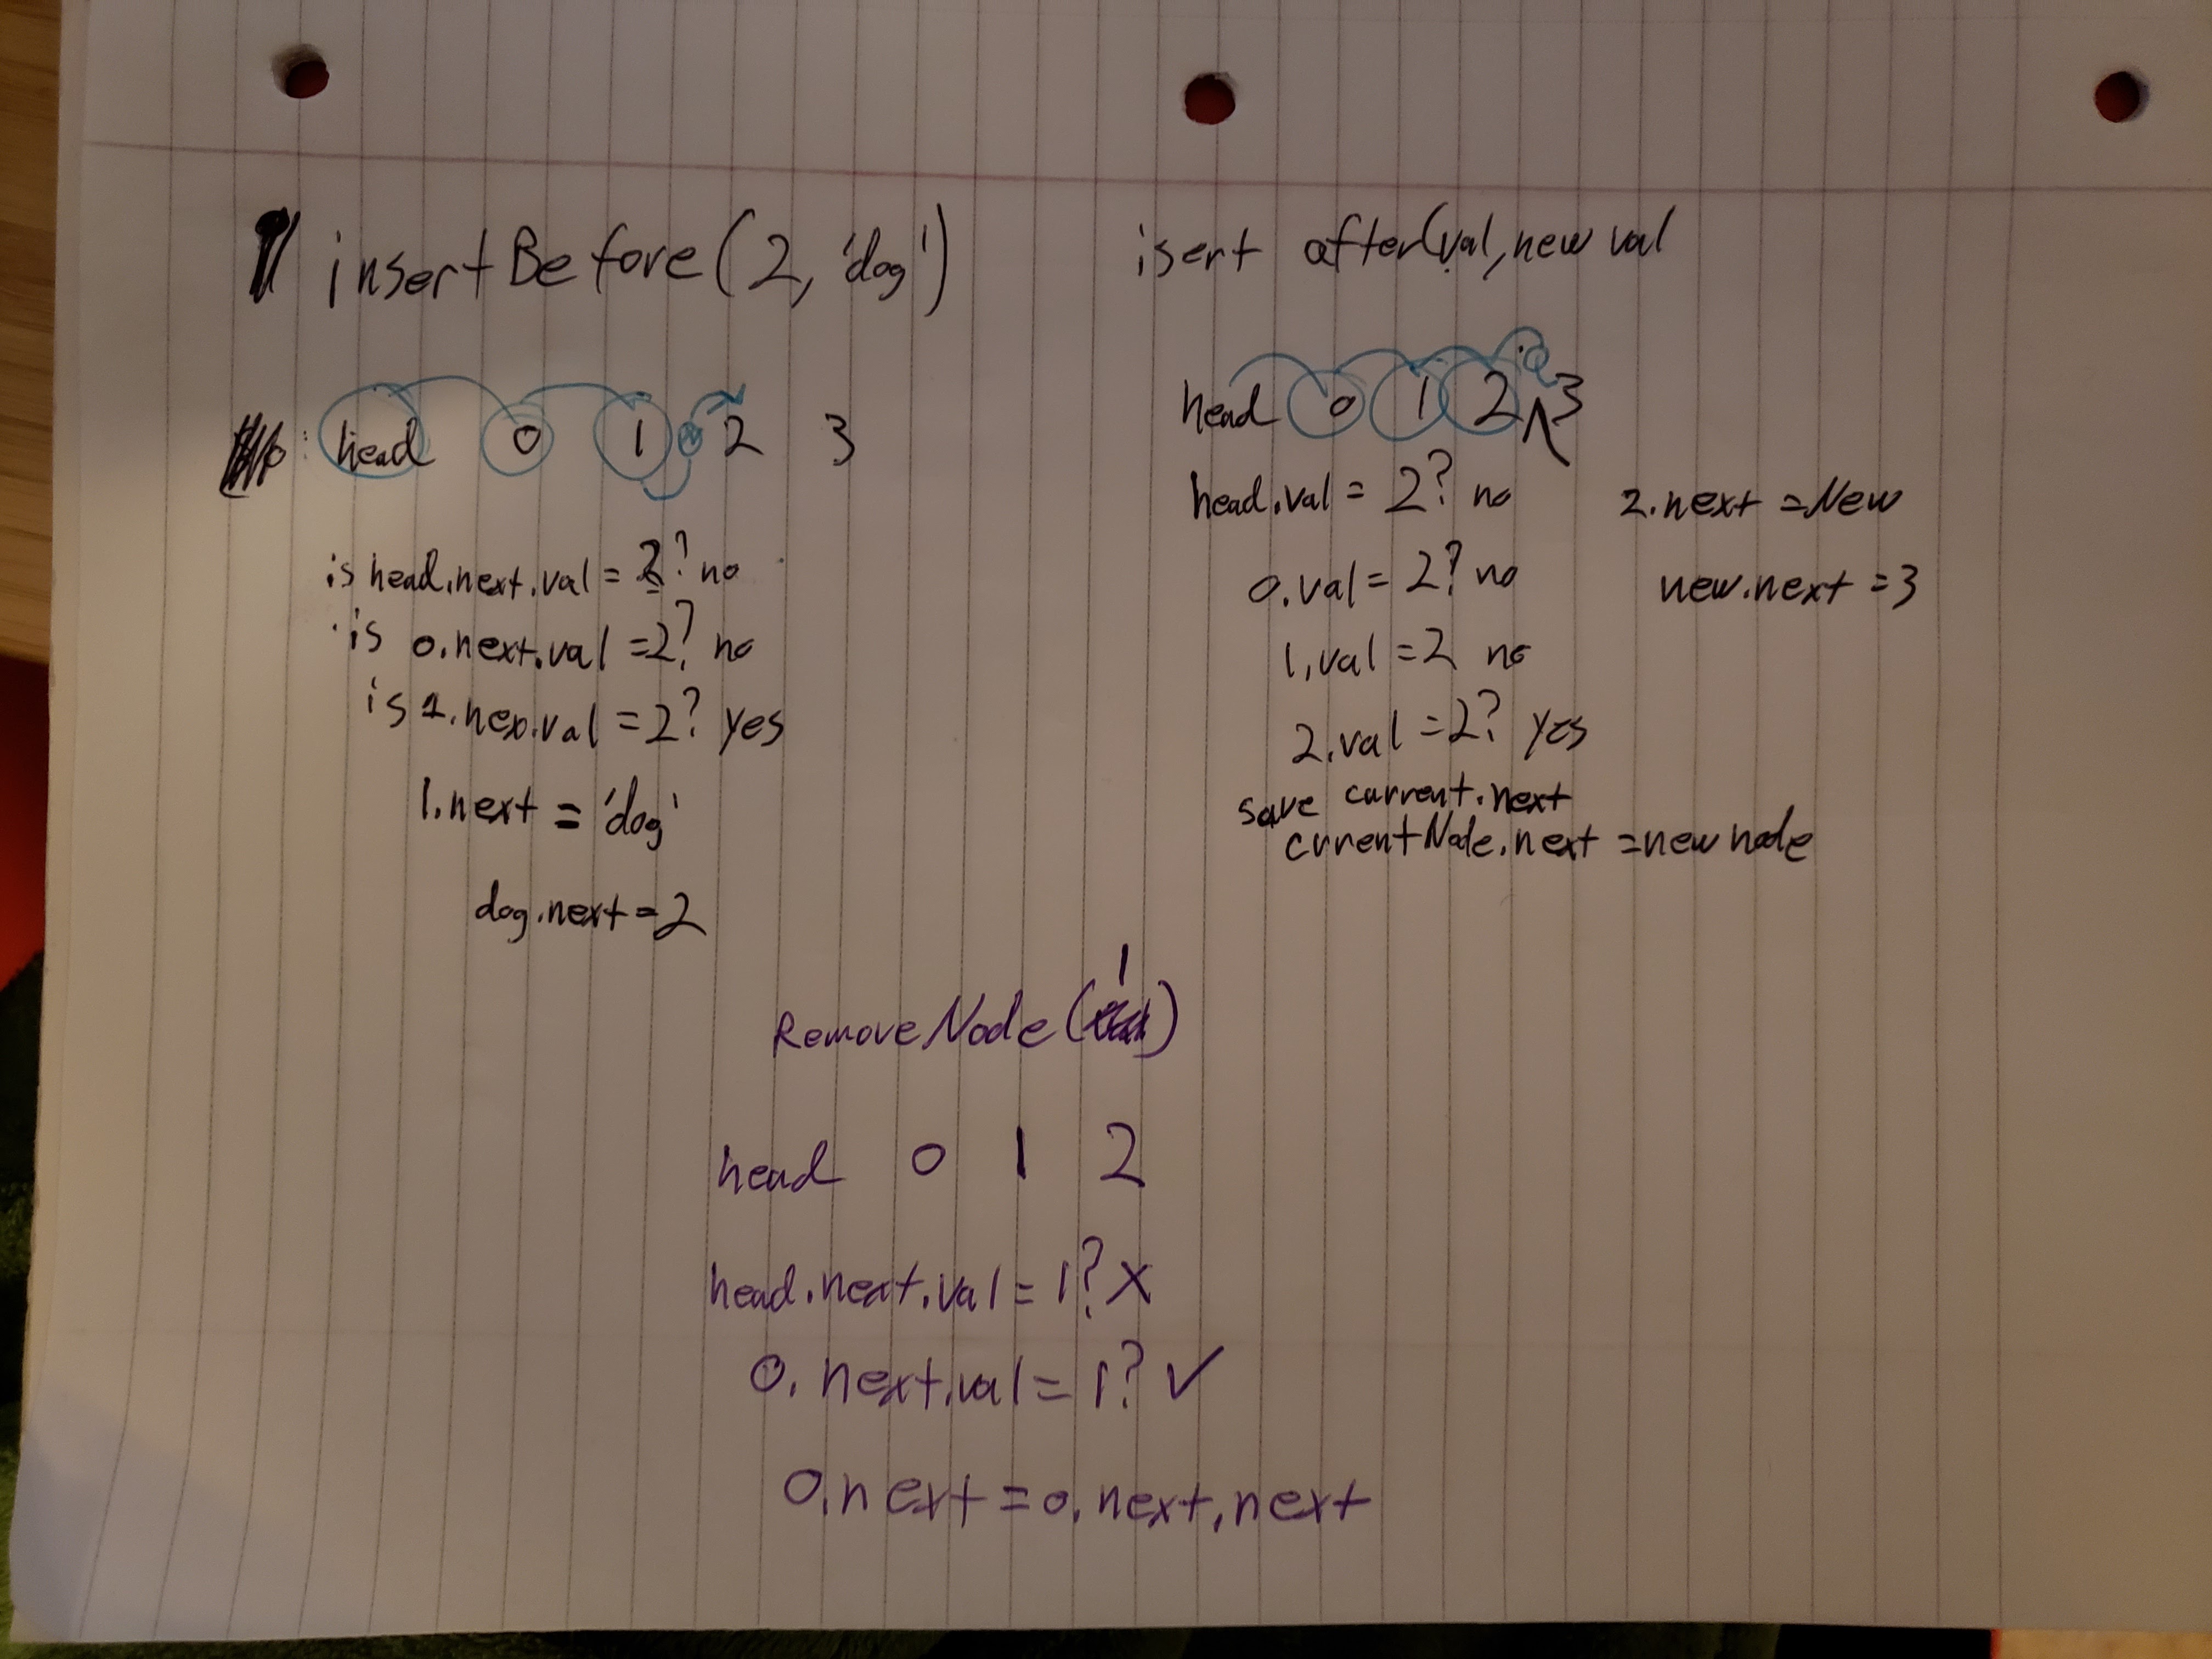 insertBefore(2, 'dog')
head 0 1 2 3
is head.next.val = 2? no
is 0.next.val = 2? no
is 1.nex.val = 2? yes
1.next = 'dog'
dog.next = 2
isert after(val, new val
head 0 1 2 3
head.val = 2? no
0.val = 2? no
1.val = 2 no
2.val = 2? yes
save current.next
currentNode.next = new node
2.next = New
new.next = 3
1
RemoveNode( )
head 0 1 2
head.next.val = 1? X
0.next.val = 1? ✓
0.next = 0.next.next